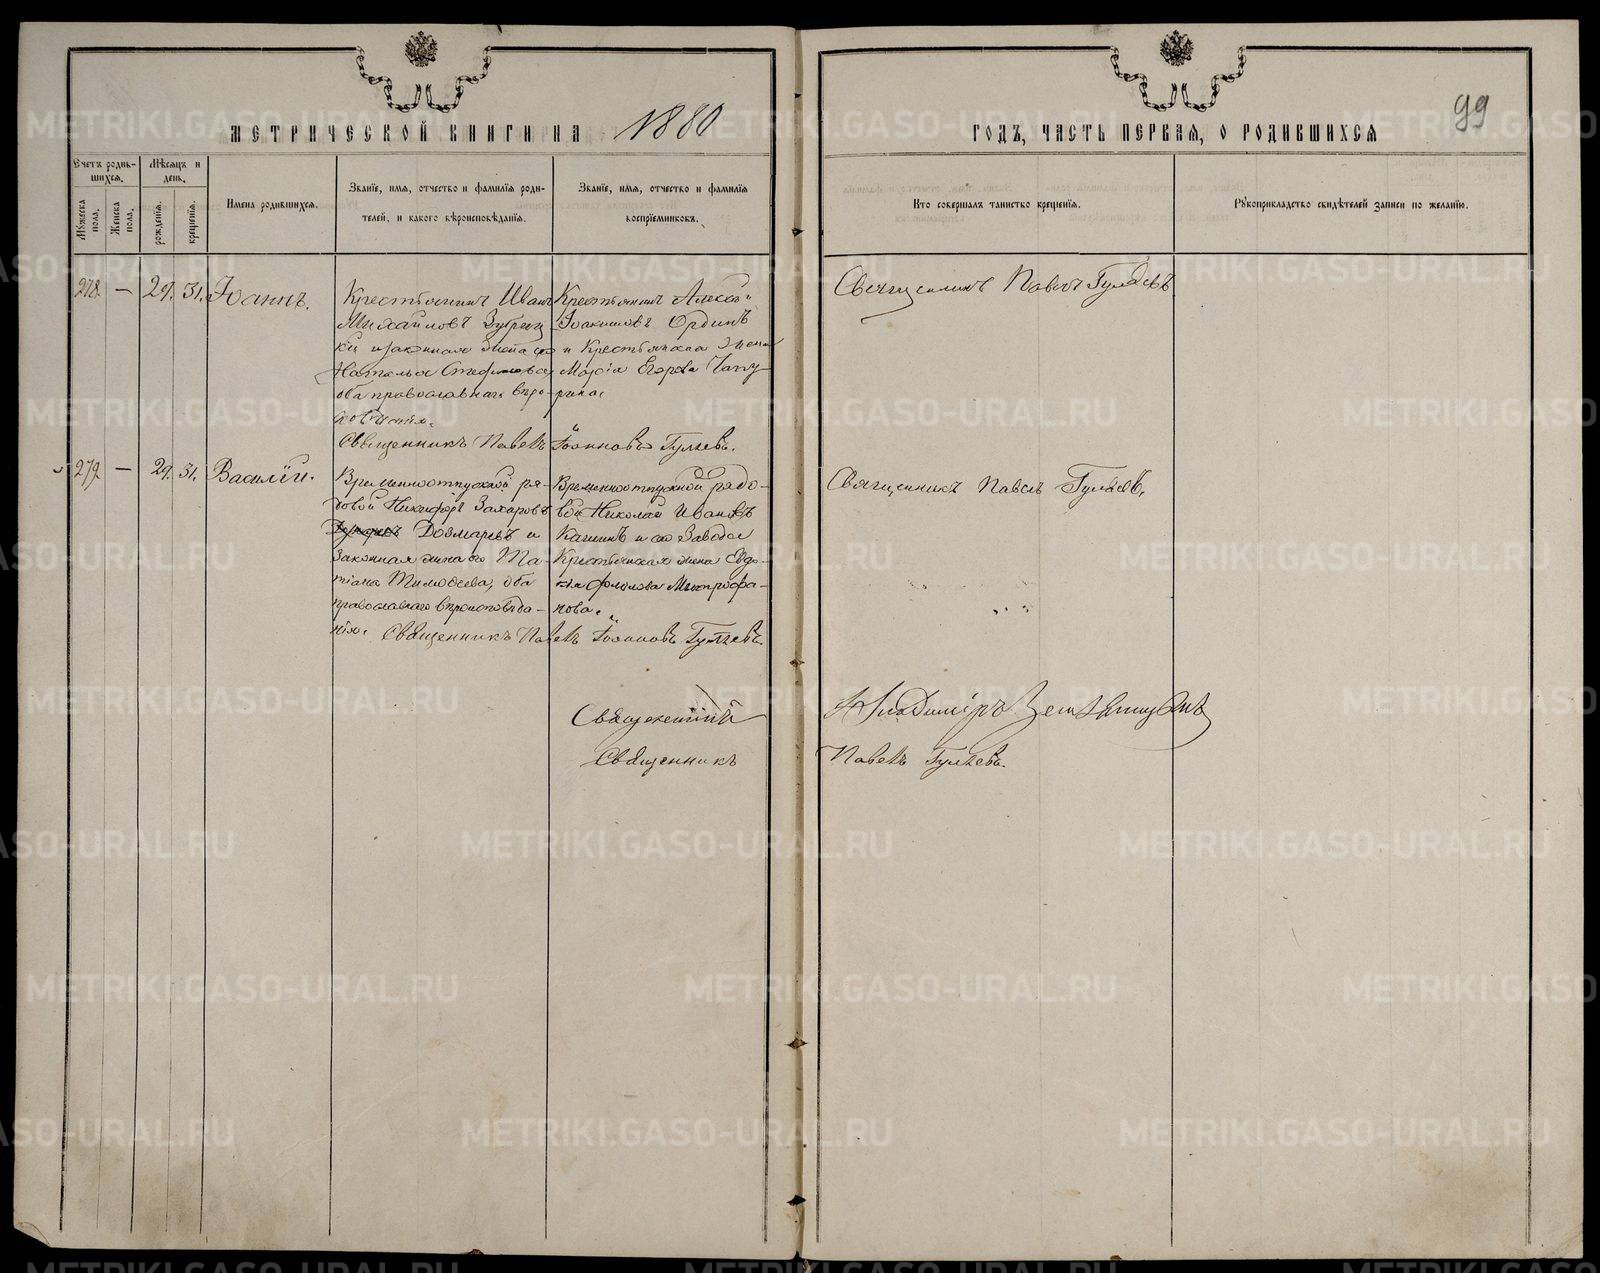 МЕТРИЧЕСКОЙ КНИГИ НА 1880
ГОДЪ, ЧАСТЬ ПЕРВАЯ, О РОДИВШИХСЯ
99
Счетъ родив-
шихся.
Мужеска пола.
Женска пола.
Мѣсяцъ и
день.
рожденія.
крещенія.
Имена родившихся.
Званіе, имя, отчество и фамилія роди-
телей, и какого вѣроисповѣданія.
Званіе, имя, отчество и фамилія
воспріемниковъ.
Кто совершалъ таинство крещенія.
Рукоприкладство свидѣтелей записи по желанію.
278. — 29. 31. Іоаннъ.
Крестьянинъ Иванъ
Михайловъ
и законная жена его
Наталья Стефанова
оба православнаго вѣро-
исповѣданія.
Крестьянинъ Алексѣй
Іоакимовъ Ординъ
и Крестьянская жена
Марія Егорова Чапу-
рина.
Священникъ Павелъ Іоанновъ Гуляевъ.
Священникъ Павелъ Гуляевъ
279 — 29. 31. Василій.
Временноотпускной ря-
довой Никифоръ Захаровъ
Дозморевъ и
законная жена его Та-
тіана Тимоѳеева, оба
православнаго вѣроисповѣда-
нія.
Временноотпускной рядо-
вой Николай Ивановъ
Кашинъ и
Крестьянская жена Евдо-
кія Митрофа-
нова.
Священникъ Павелъ Іоанновъ Гуляевъ.
Священникъ Павелъ Гуляевъ.
Владиміръ
Священникъ Павелъ Гуляевъ.
METRIKI.GASO-URAL.RU